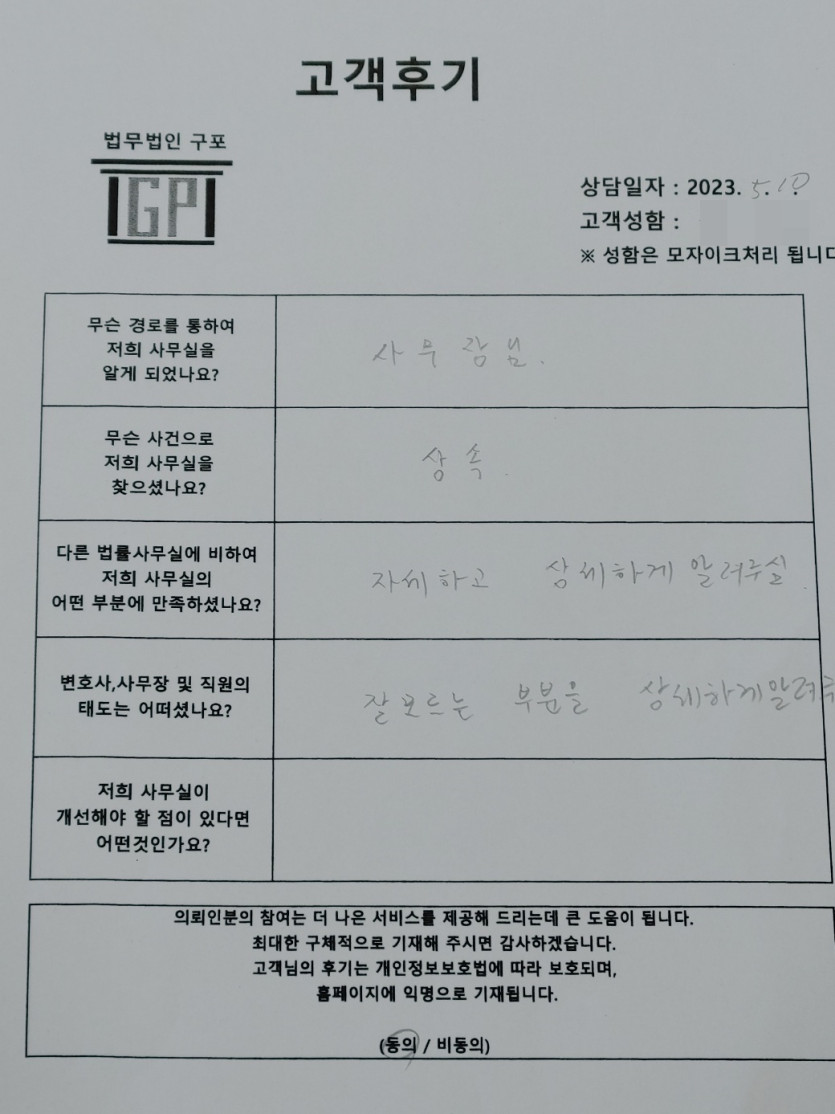 고객후기
법무법인 구포
GP
상담일자 : 2023. 5.10
고객성함 :
※ 성함은 모자이크처리 됩니다
무슨 경로를 통하여
저희 사무실을
알게 되었나요?
사무장님.
무슨 사건으로
저희 사무실을
찾으셨나요?
상속.
다른 법률사무실에 비하여
저희 사무실의
어떤 부분에 만족하셨나요?
자세하고 상세하게 알려주실
변호사,사무장 및 직원의
태도는 어떠셨나요?
잘모르는 부분을 상세하게알려주
저희 사무실이
개선해야 할 점이 있다면
어떤것인가요?
의뢰인분의 참여는 더 나은 서비스를 제공해 드리는데 큰 도움이 됩니다.
최대한 구체적으로 기재해 주시면 감사하겠습니다.
고객님의 후기는 개인정보보호법에 따라 보호되며,
홈페이지에 익명으로 기재됩니다.
(동의 / 비동의)